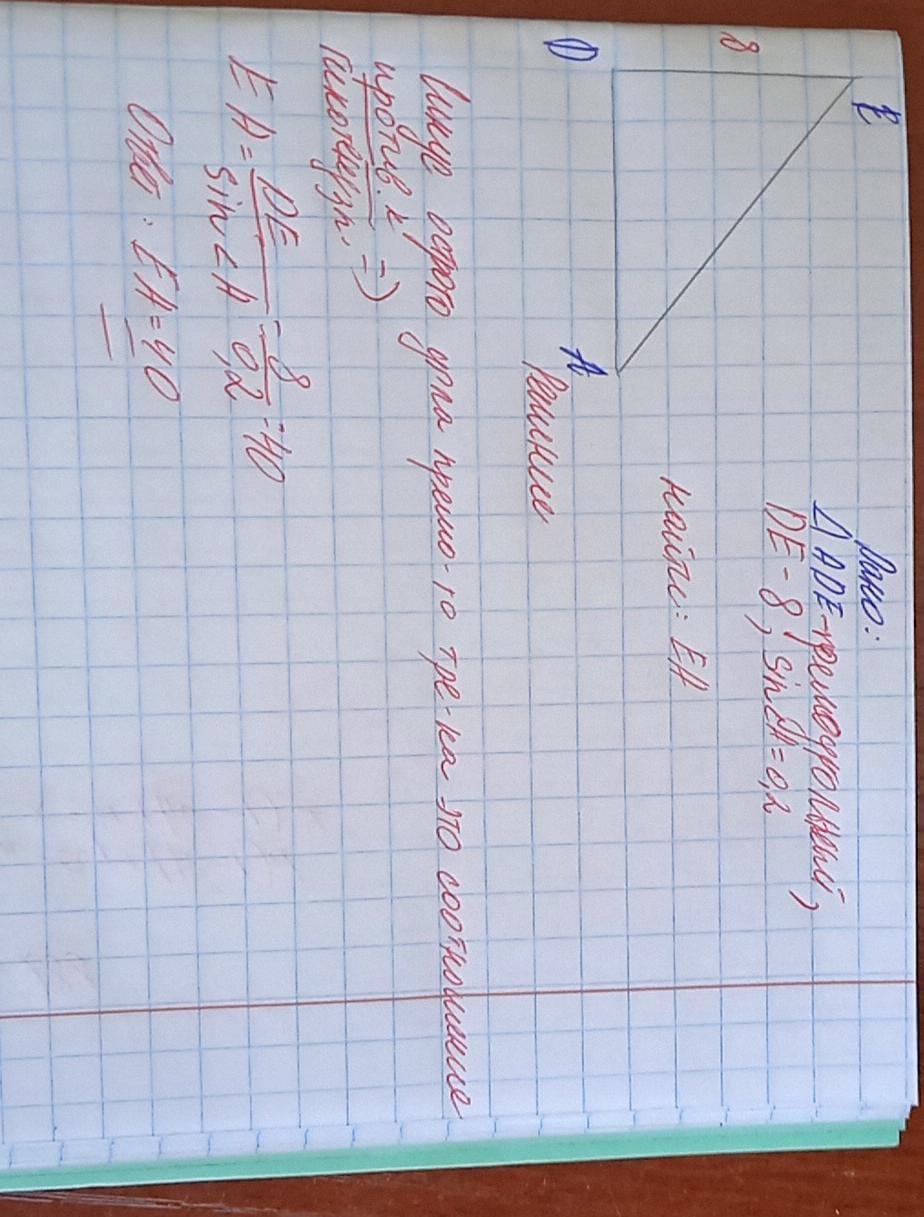 E
8
D
A
Дано:
△ADE-прямоугольный,
DE - 8, sin∠A = 0,2
найти: EA
Решение
Синус острого угла прямо-го тре-ка это соотношение
против. к
гипотенузе. =>
EA = DE / sin∠A = 8 / 0,2 = 40
Ответ: EA = 40